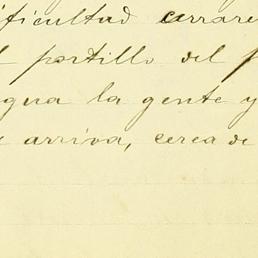 ificultad cerrare
portillo del
gua la gente y
arriva, cerca de